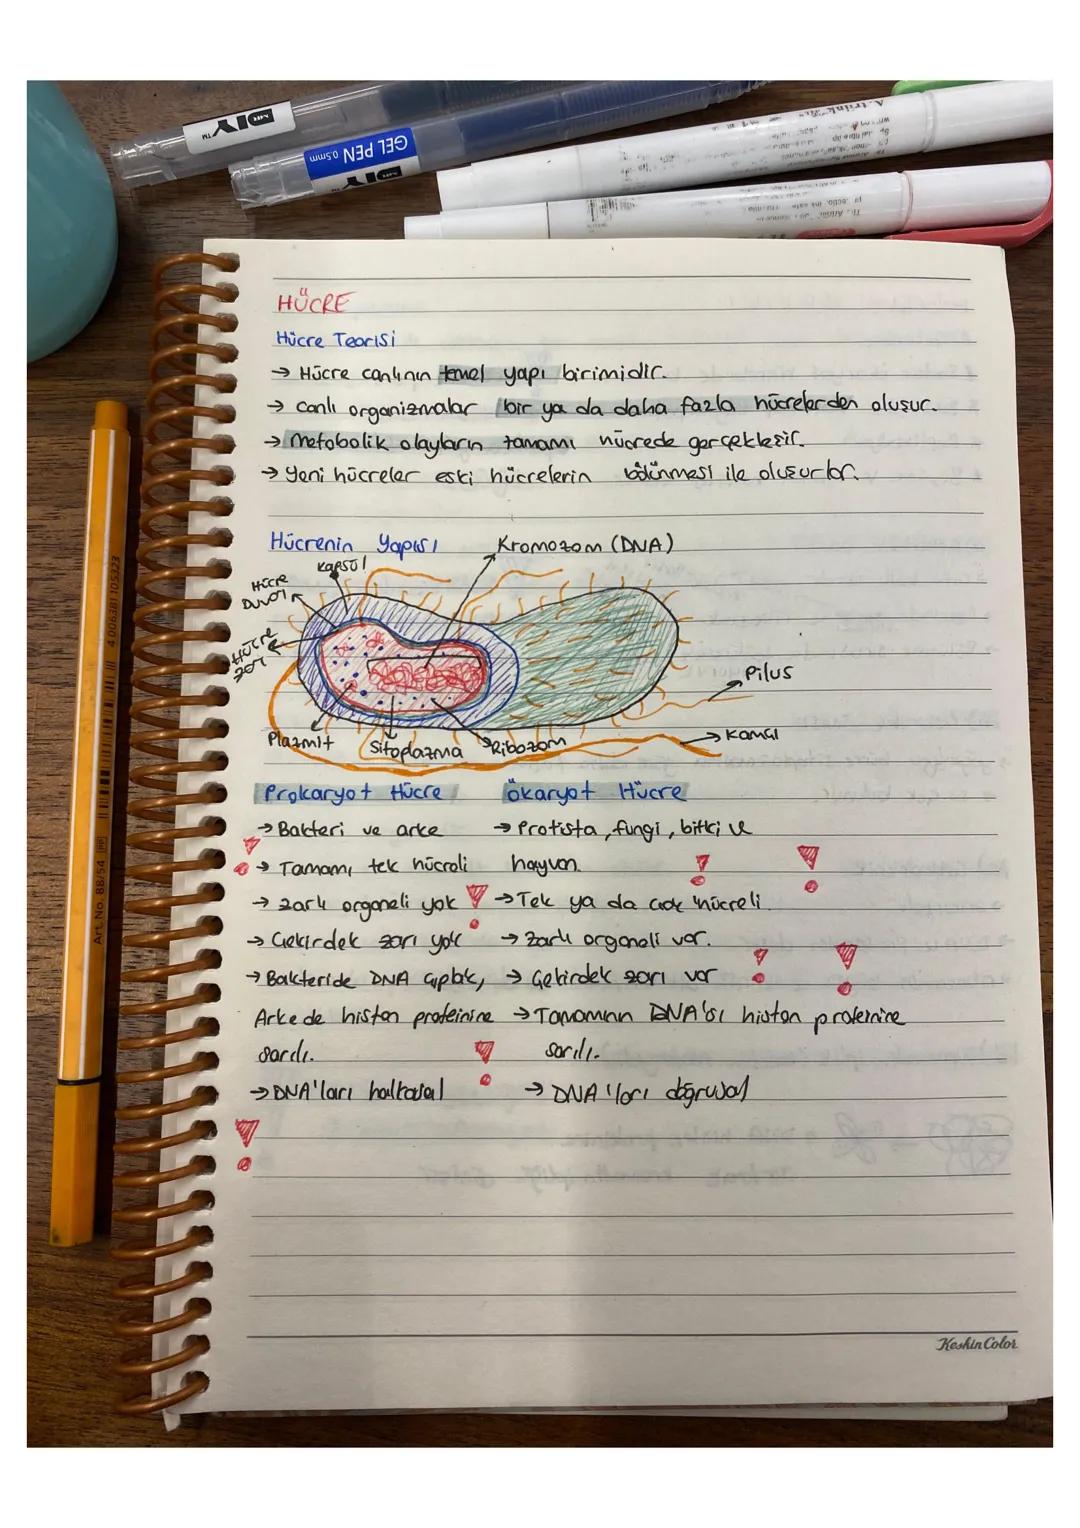 MR DIY™
GEL PEN 0.5mm
MR DIY
HÜCRE
Hücre Teorisi
→ Hücre canlının temel yapı birimidir.
→ canlı organizmalar bir ya da daha fazla hücrelerden oluşur.
→ Metobolik olayların tamamı hücrede gerçekleşir.
→ Yeni hücreler eski hücrelerin bölünmesi ile oluşurlar.
Hücrenin Yapısı
Kromozom (DNA)
Kapsül
Hücre Duvarı
Hücre zarı
Pilus
Kamçı
Plazmit
Sitoplazma
Ribozom
Prokaryot Hücre
Ökaryot Hücre
→ Bakteri ve arke
→ Protista, fungi, bitki ve
→ Tamamı tek hücreli
hayvan.
→ zarlı organeli yok
→ Tek ya da çok hücreli.
→ Çekirdek zarı yok
→ Zarlı organeli var.
→ Bakteride DNA çıplak,
→ Çekirdek zarı var
Arkede histon proteinine
→ Tamamının DNA'sı histon proteinine
sarılı.
sarılı.
→ DNA'ları halkasal
→ DNA'ları doğrusal
Art. No. 88/54 PP
4 006381 105323
Keskin Color